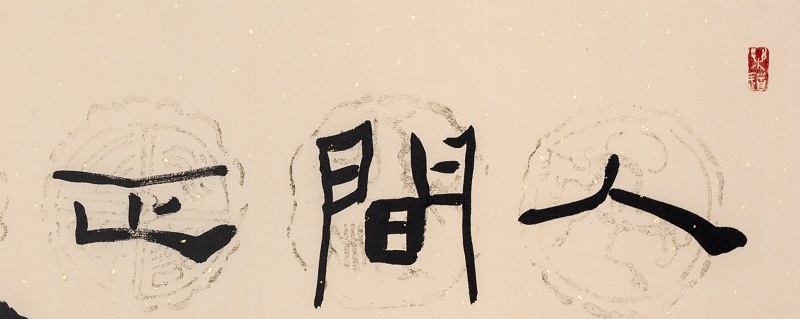 人間正